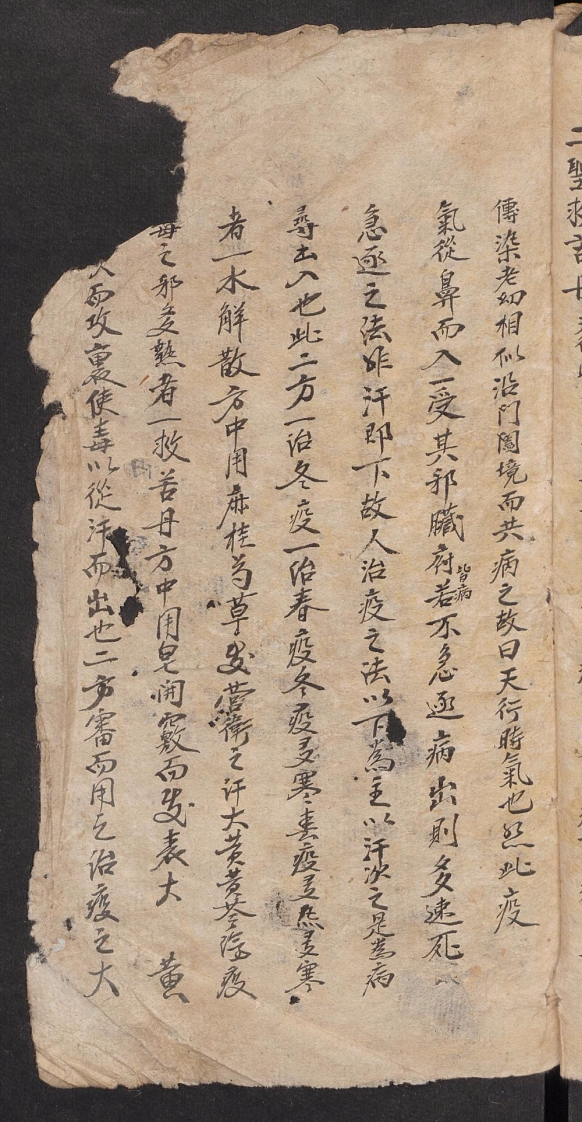 二聖救苦
傳染老幼相似沿門闔境而共病之故曰天行時氣也然此疫
氣從鼻而入一受其邪臟府皆病若不急逐病出則多速死
急逐之法非汗即下故人治疫之法以下為主以汗次之是為病
尋出入也此二方一治冬疫一治春疫冬疫多寒春疫多熱多寒
者一水解散方中用麻桂芍草发营衛之汗大黄黄芩除疫
毒之邪多熱者一救苦丹方中用皂開竅而发表大 黄
而攻裏使毒以從汗而出也二方審而用之治疫之大